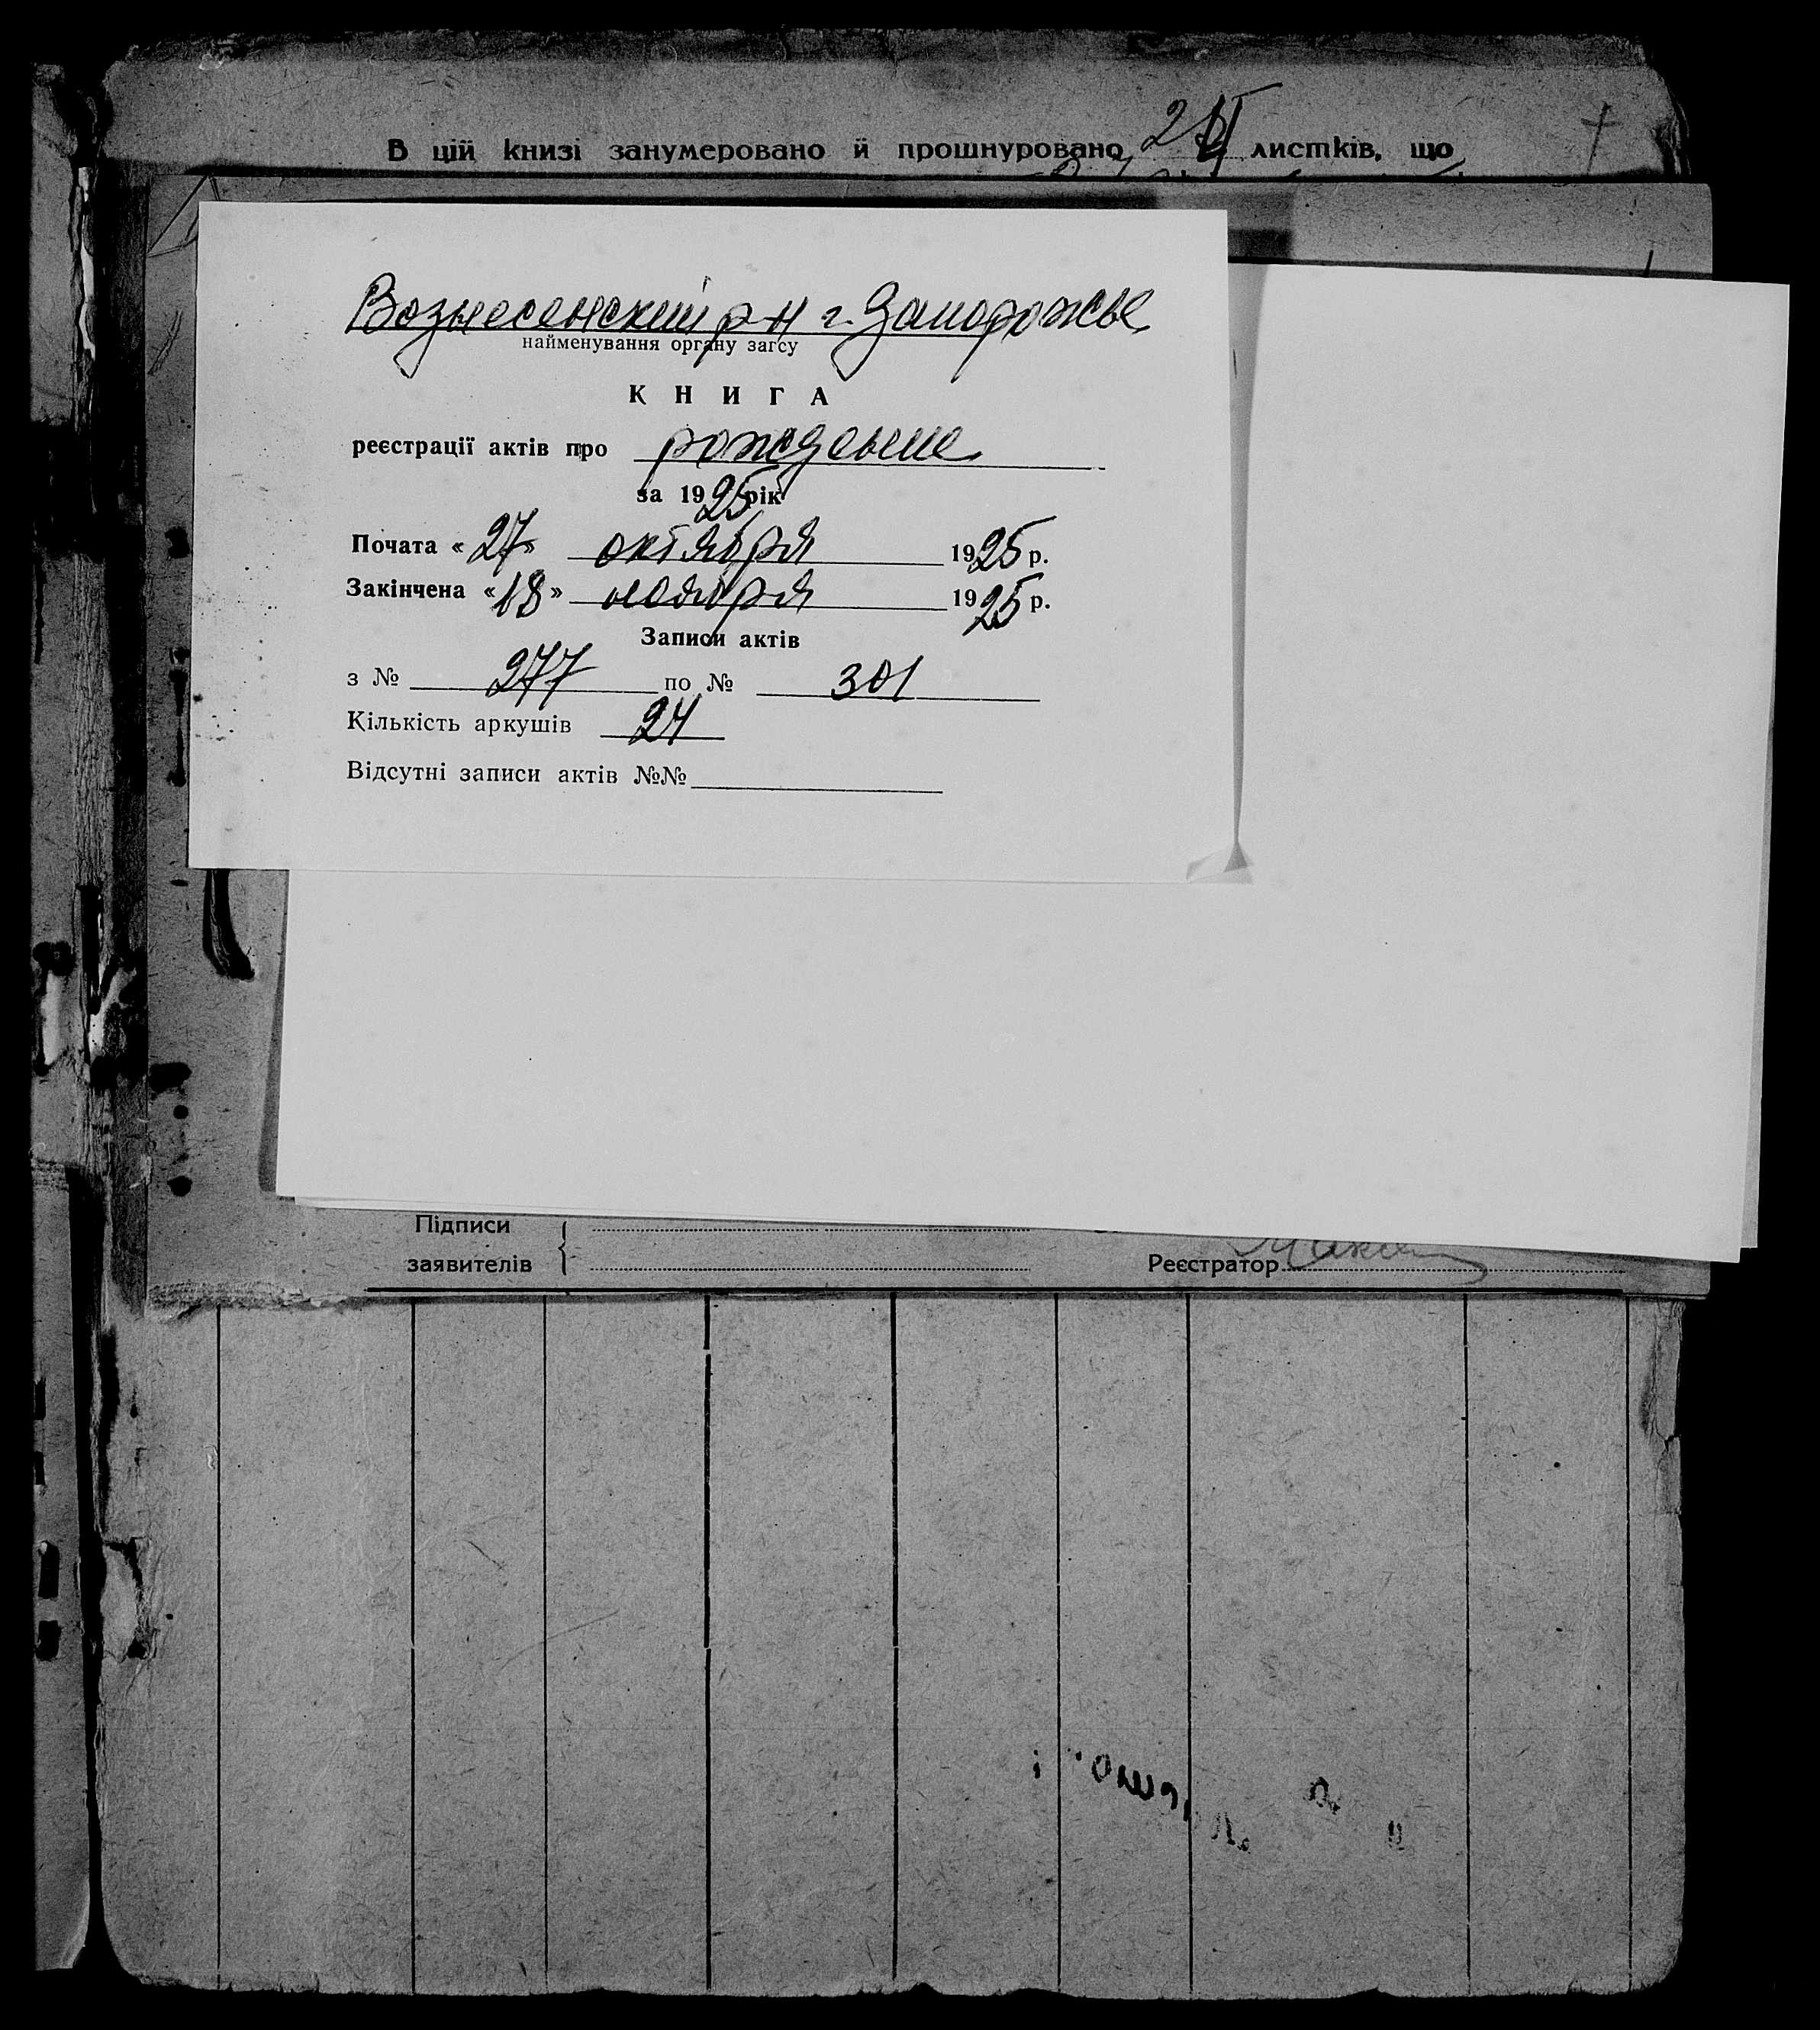 В цій книзі занумеровано й прошнуровано листків, що
Вознесенский р-н г. Запорожье
найменування органу загсу
КНИГА
реєстрації актів про рождение
за 1925 рік
Почата «27» октября 1925 р.
Закінчена «18» ноября 1925 р.
Записи актів
з № 277 по № 301
Кількість аркушів 24
Відсутні записи актів №№
Підписи
заявителів
Реєстратор